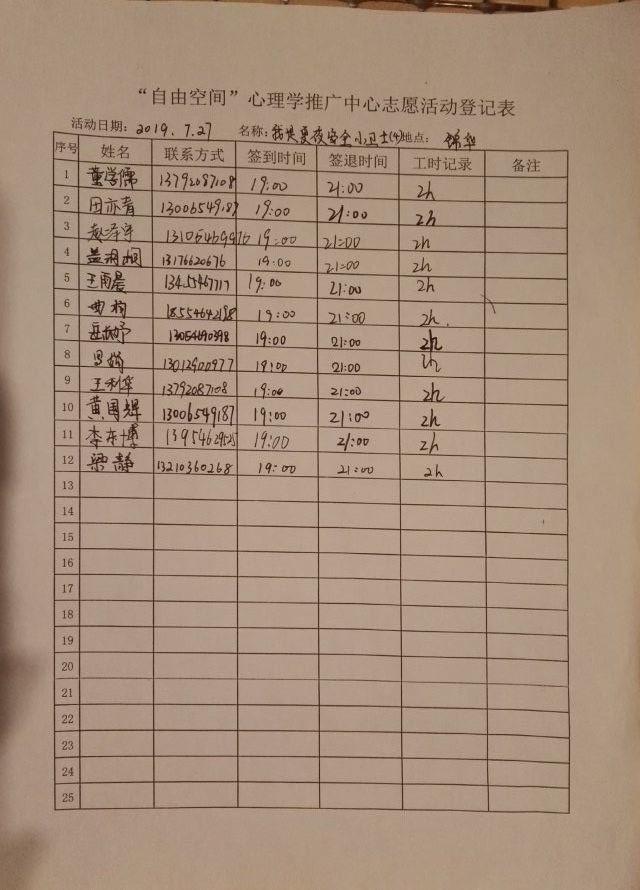 “自由空间”心理学推广中心志愿活动登记表
活动日期: 2019.7.27 名称: 我是夏夜安全小卫士(4) 地点: 锦华
序号 姓名 联系方式 签到时间 签退时间 工时记录 备注
1 董学儒 13792087108 19:00 21:00 2h
2 田亦青 13006549187 19:00 21:00 2h
3 赵泽宇 13105469976 19:00 21:00 2h
4 13176620676 19:00 21:00 2h
5 王雨晨 13455467717 19:00 21:00 2h
6 曲构 18554642198 19:00 21:00 2h.
7 19:00 21:00 2h
8 13012900977 19:00 21:00 2h
9 王利华 13792087108 19:00 21:00 2h
10 黄国辉 13006549187 19:00 21:00 2h
11 李东博 13954629525 19:00 21:00 2h
12 梁静 13210360268 19:00 21:00 2h
13
14
15
16
17
18
19
20
21
22
23
24
25